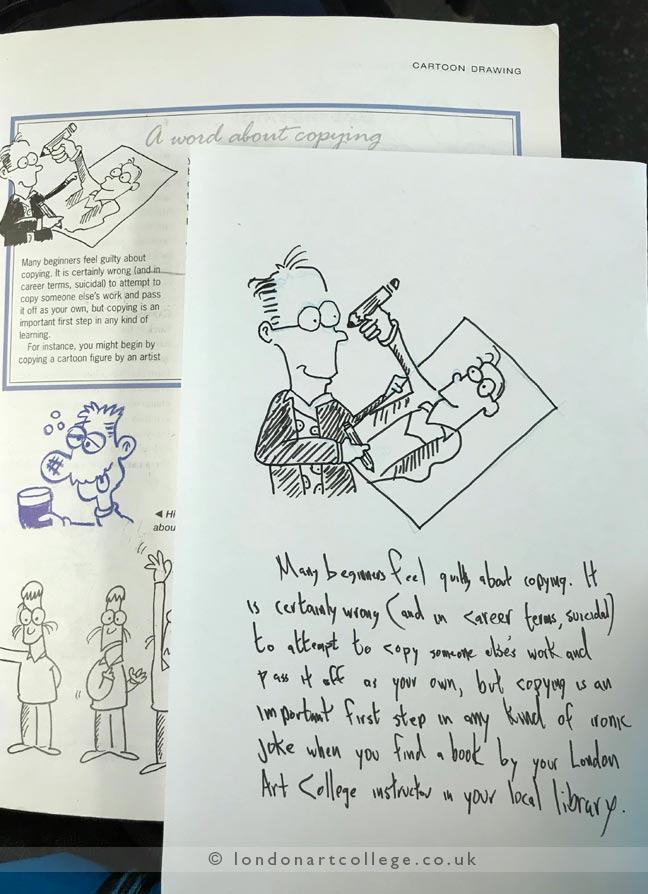 CARTOON DRAWING
A word about copying
Many beginners feel guilty about
copying. It is certainly wrong (and in
career terms, suicidal) to attempt to
copy someone else's work and pass
it off as your own, but copying is an
important first step in any kind of
learning.
For instance, you might begin by
copying a cartoon figure by an artist
◄ Hi
abou
Many beginners feel guilty about copying. It
is certainly wrong (and in career terms, suicidal)
to attempt to copy someone else's work and
pass it off as your own, but copying is an
important first step in any kind of ironic
joke when you find a book by your London
Art College instructor in your local library.
© londonartcollege.co.uk